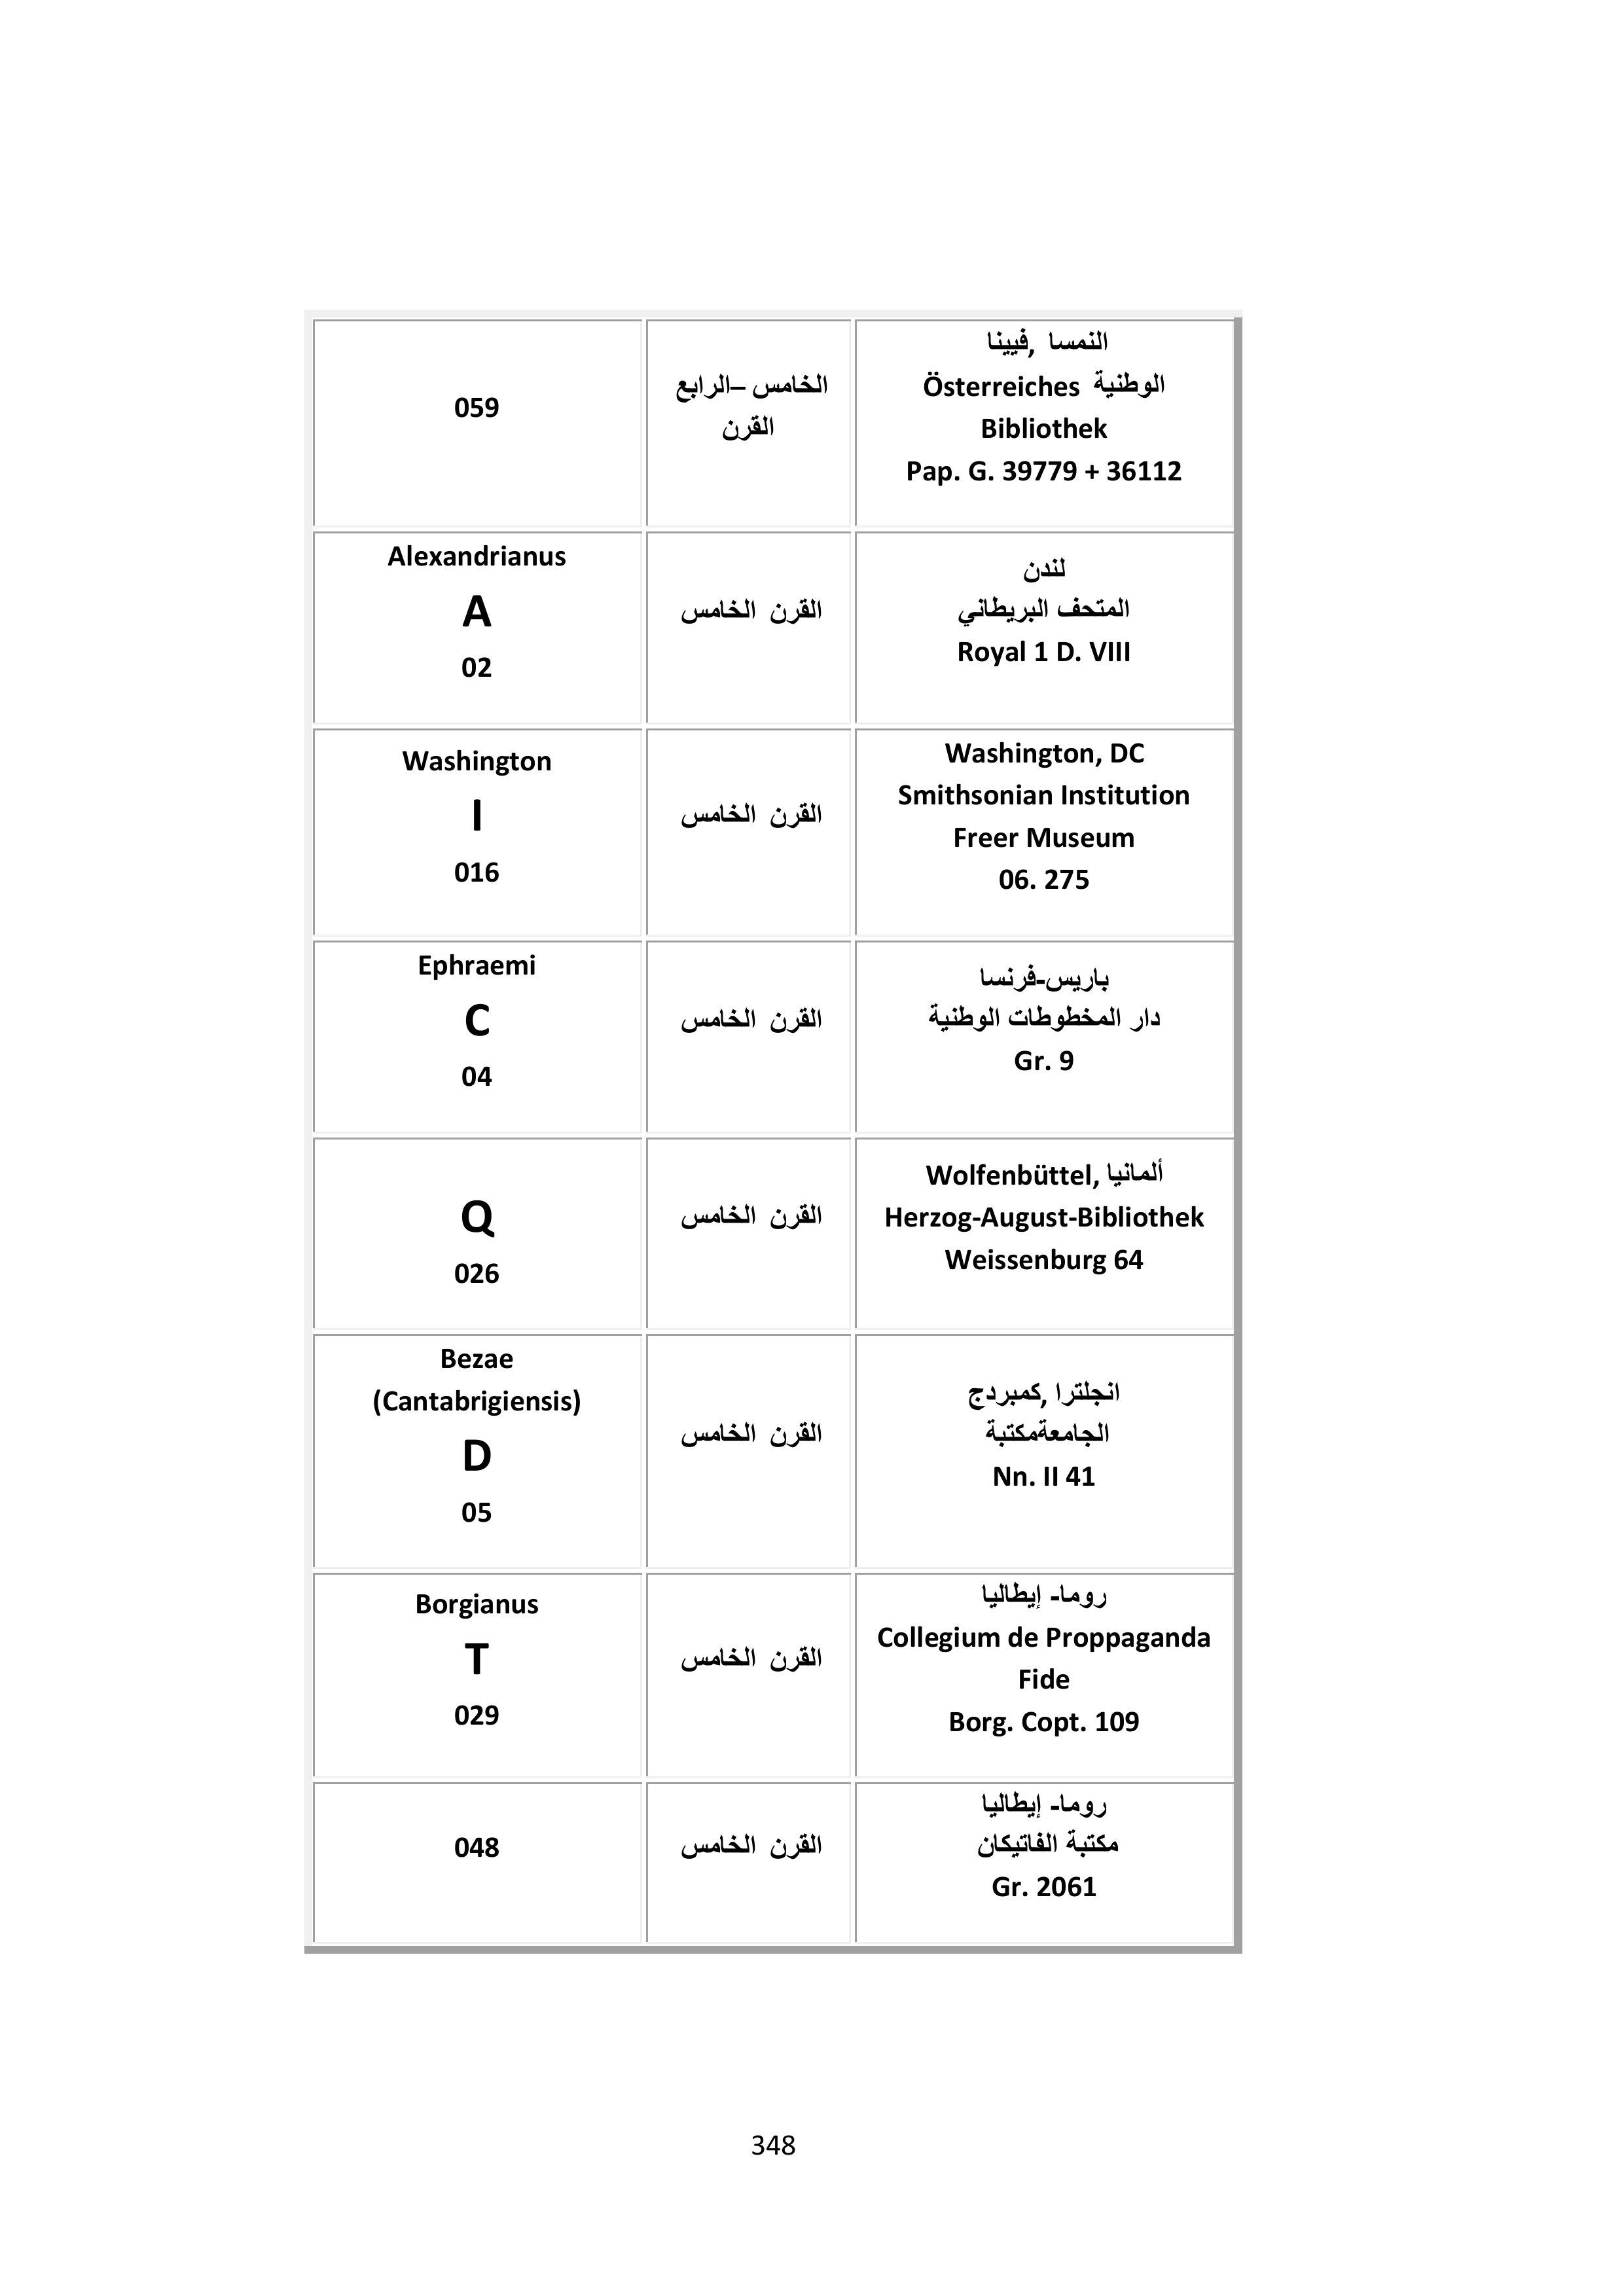 059
الخامس –الرابع
القرن
النمسا ,فيينا
الوطنية Österreiches
Bibliothek
Pap. G. 39779 + 36112
Alexandrianus
A
02
القرن الخامس
لندن
المتحف البريطاني
Royal 1 D. VIII
Washington
I
016
القرن الخامس
Washington, DC
Smithsonian Institution
Freer Museum
06. 275
Ephraemi
C
04
القرن الخامس
باريس-فرنسا
دار المخطوطات الوطنية
Gr. 9
Q
026
القرن الخامس
Wolfenbüttel, ألمانيا
Herzog-August-Bibliothek
Weissenburg 64
Bezae
(Cantabrigiensis)
D
05
القرن الخامس
انجلترا ,كمبردج
الجامعةمكتبة
Nn. II 41
Borgianus
T
029
القرن الخامس
روما- إيطاليا
Collegium de Proppaganda
Fide
Borg. Copt. 109
048
القرن الخامس
روما- إيطاليا
مكتبة الفاتيكان
Gr. 2061
348